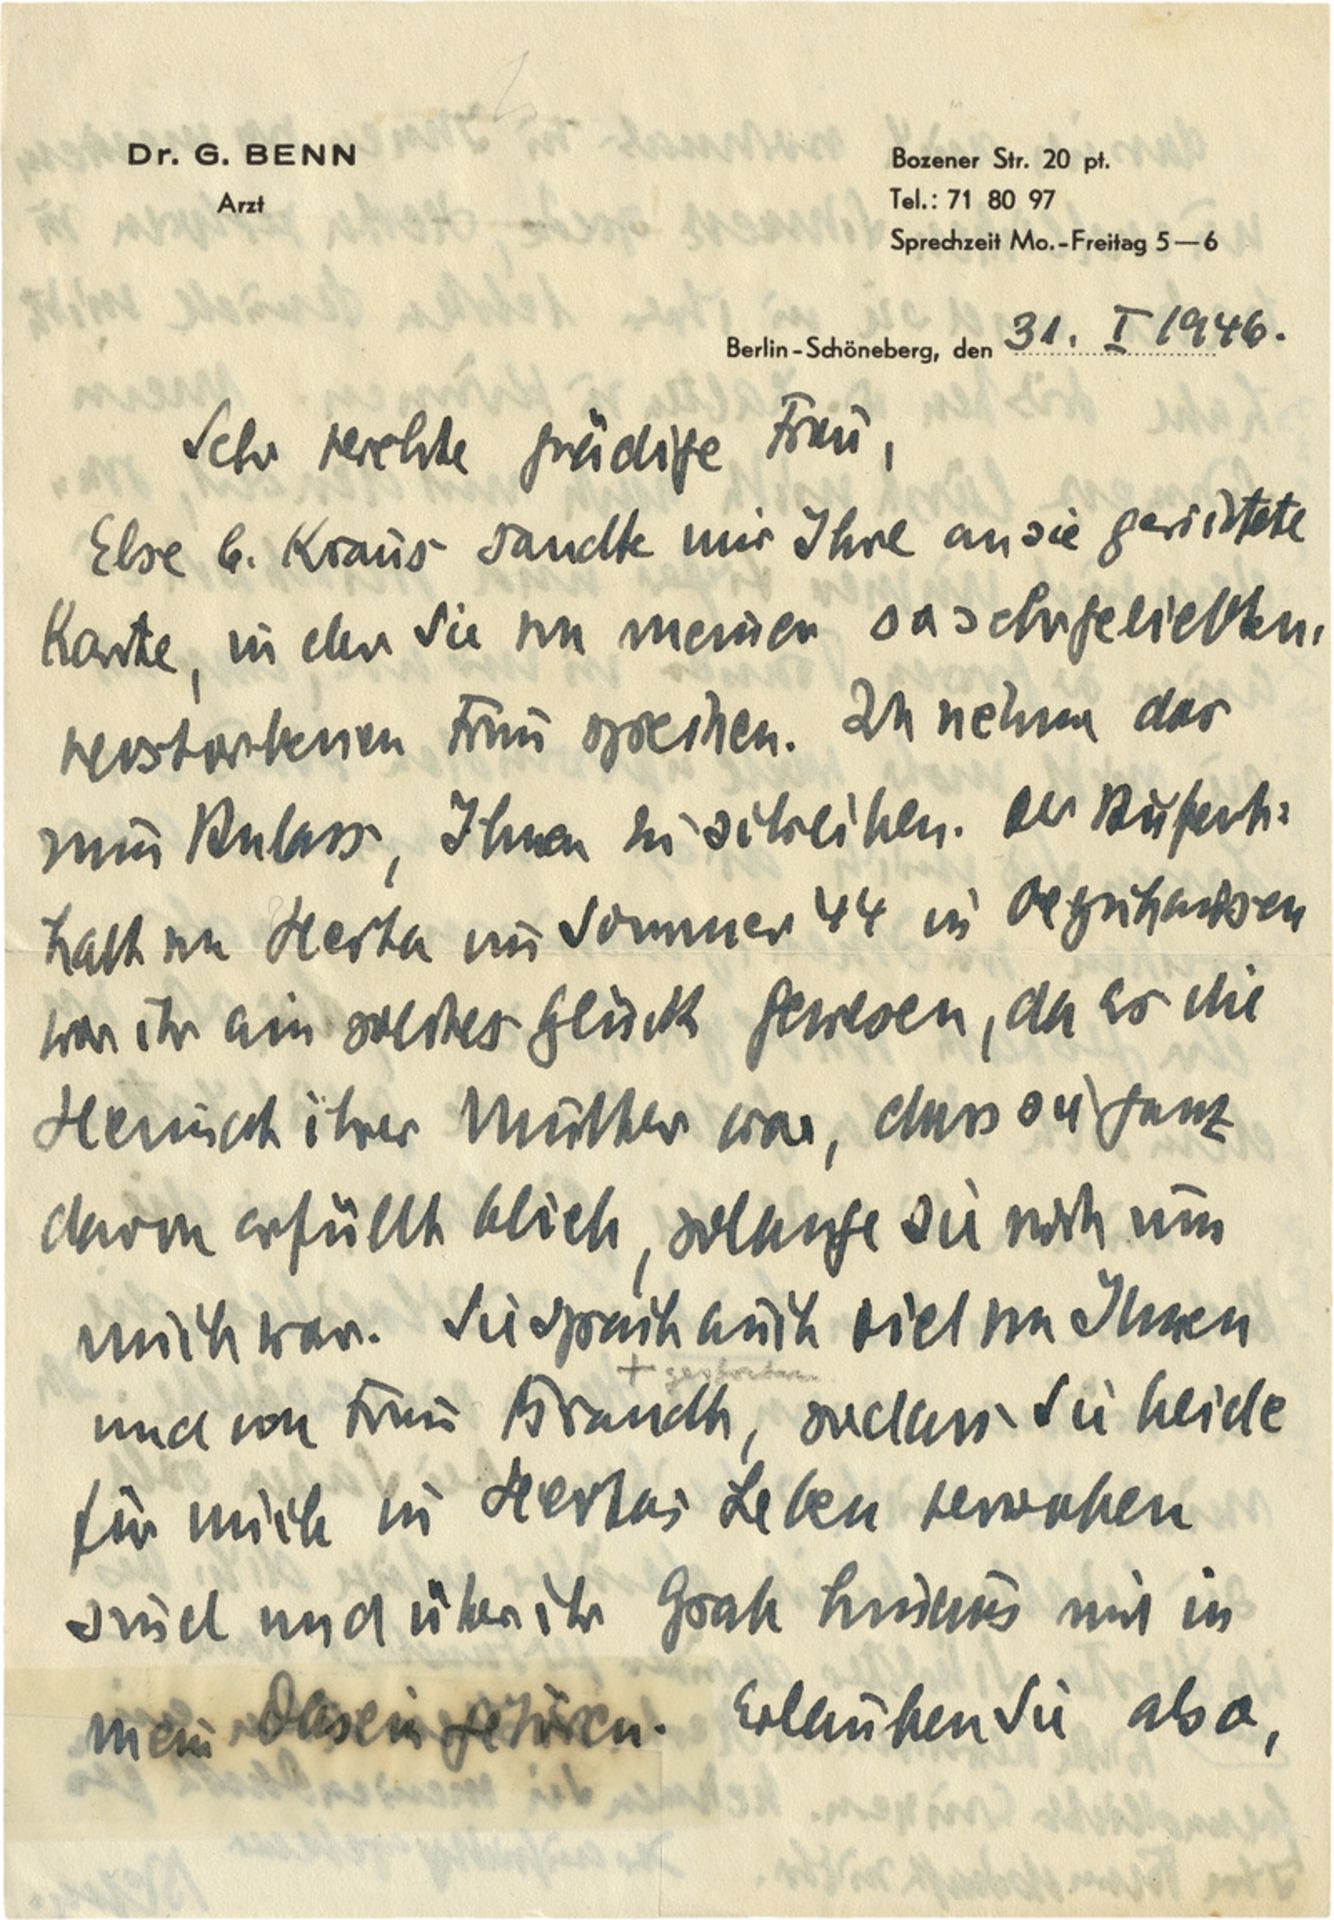 Dr. G. BENN
Arzt
Bozener Str. 20 pt.
Tel.: 71 80 97
Sprechzeit Mo.-Freitag 5—6
Berlin-Schöneberg, den 31. I 1946.
Sehr verehrte gnädige Frau,
Else C. Kraus sandte mir Ihre an sie gerichtete
Karte, in der Sie von meiner so sehr geliebten,
verstorbenen Frau sprechen. Ich nehme das
zum Anlass, Ihnen zu schreiben. Der Aufent-
halt von Herta im Sommer 44 in
war ihr ein solches Glück gewesen, da es die
Heimat ihrer Mutter war, dass sie ganz
davon erfüllt blieb, solange sie noch um
mich war. Sie sprach auch viel von Ihnen
+ gestorben
und von Frau Brandt, sodass Sie beide
für mich in Hertas Leben verwoben
sind und über ihr Grab hinaus mit in
mein Dasein gehören. Erlauben Sie also,